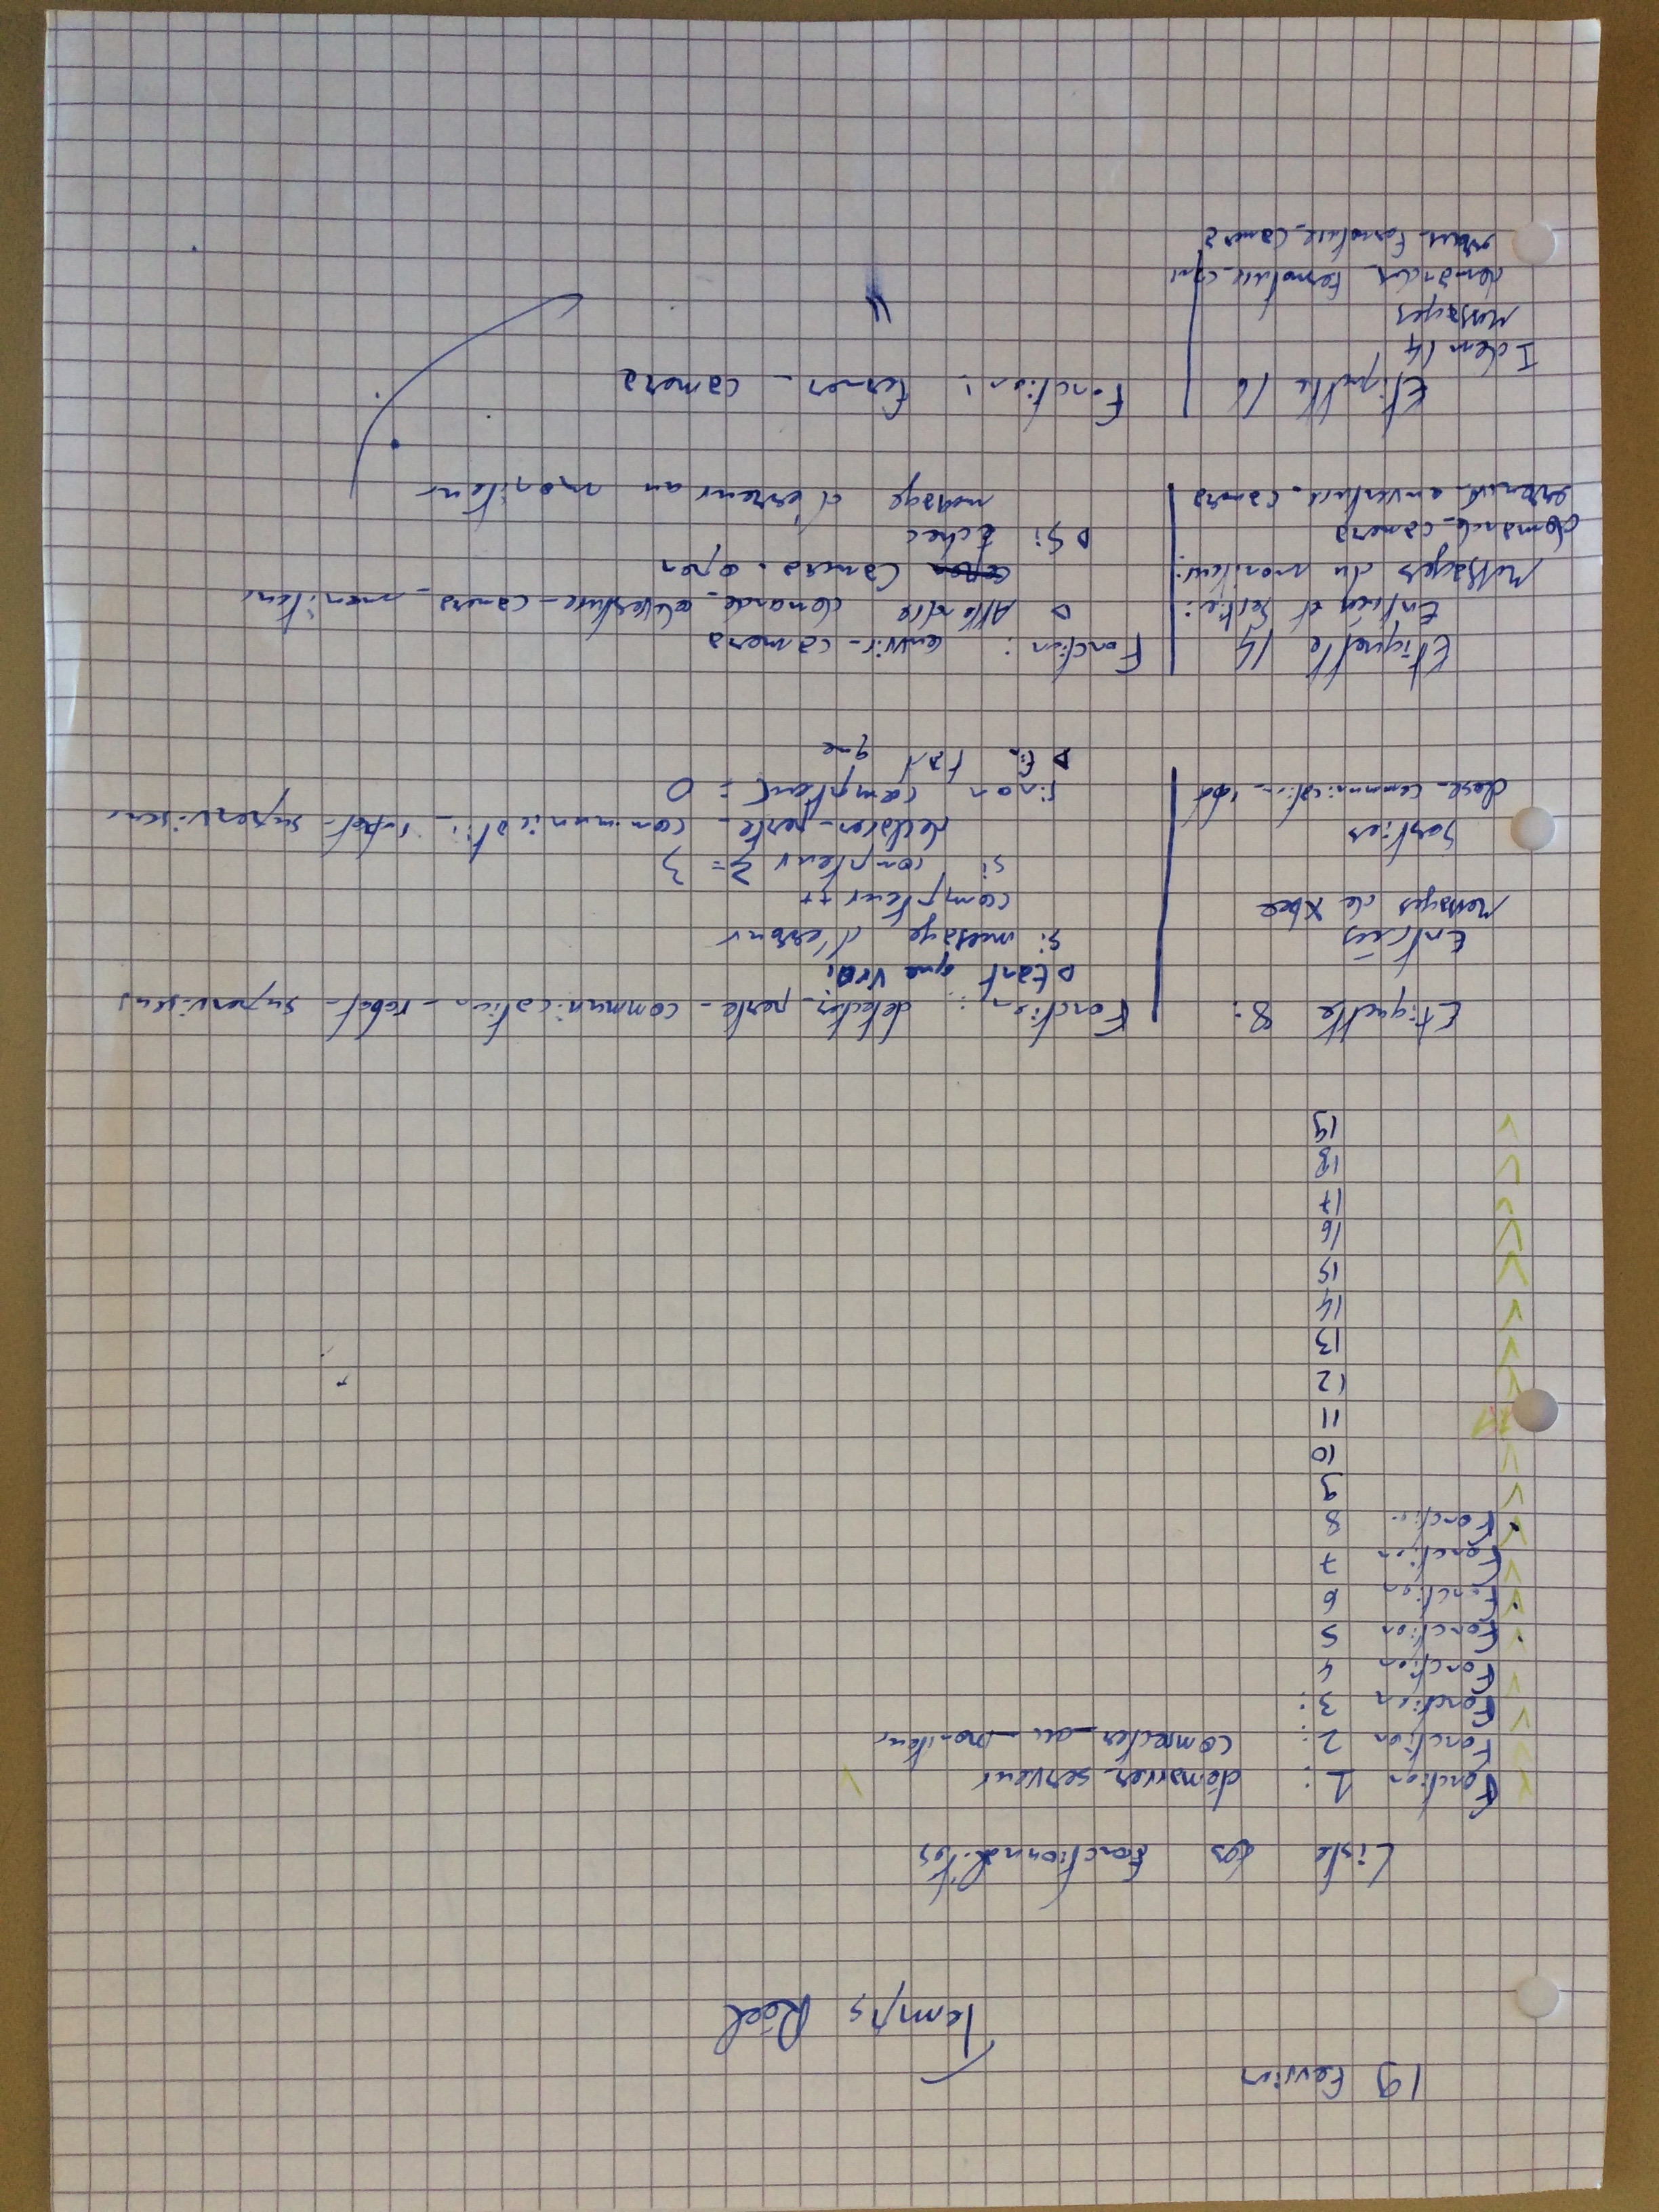 19 Fevrier
Temps Réel
Liste des fonctionnalités
Fonction 1 : démarrer_serveur
Fonction 2 : connecter_au_moniteur
Fonction 3 :
Fonction 4
Fonction 5
Fonction 6
Fonction 7
Fonction 8
9
10
11
12
13
14
15
16
17
18
19
Etiquette 8 :
Entrées
Messages de Xbee
Sorties
close_communication_robot
Fonction : detecter_perte_communication_robot_superviseur
tant que vrai
si message d'erreur
compteur ++
si compteur >= 3
declarer_perte_communication_robot_superviseur
sinon compteur = 0
fin tant que
Etiquette 14
Entrées et Sorties :
Messages du moniteur :
demande_camera
erreur_ouverture_camera
Fonction : ouvrir_camera
Attendre demande_ouverture_camera_moniteur
Camera.open
Si échec
message d'erreur au moniteur
Etiquette 16
Idem 14
Messages
fermeture_cam
erreur_fermeture_camera
Fonction : fermer_camera